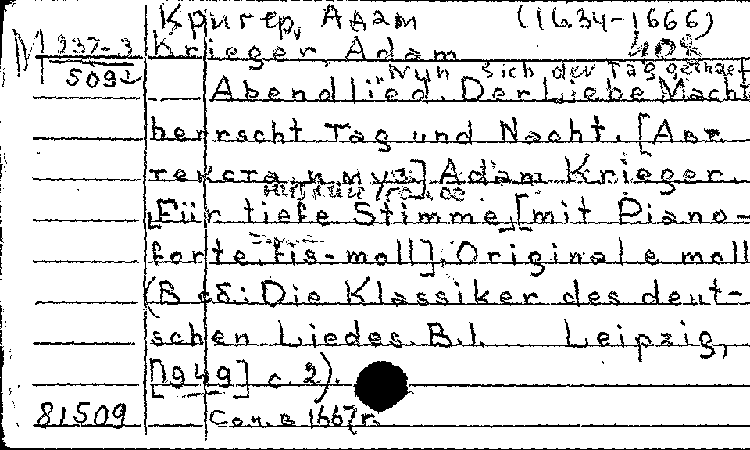 Кригер, Адам (1634-1666)
M 937-3 Krieger, Adam 408
5092 „Nun sich der Tag geendet
Abendlied. Der Liebe Macht
herrscht Tag und Nacht. [Авт.
текста и муз.] Adam Krieger.
Für tiefe Stimme [mit Piano-
forte. fis-moll]. Originale moll
(В сб: Die Klassiker des deut-
schen Liedes. B.I. Leipzig,
[1949] с. 2).
81509 Соч. в 1667 г.